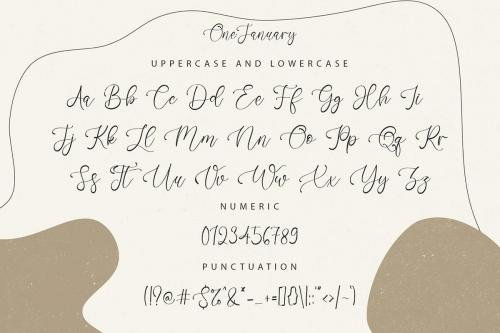 OneJanuary
UPPERCASE AND LOWERCASE
Aa Bb Cc Dd Ee Ff Gg Hh Ii
Jj Kk Ll Mm Nn Oo Pp Qq Rr
Ss Tt Uu Vv Ww Xx Yy Zz
NUMERIC
0123456789
PUNCTUATION
(!?@#$%^&*-_+=[]{}\|:;'"<>/~`)